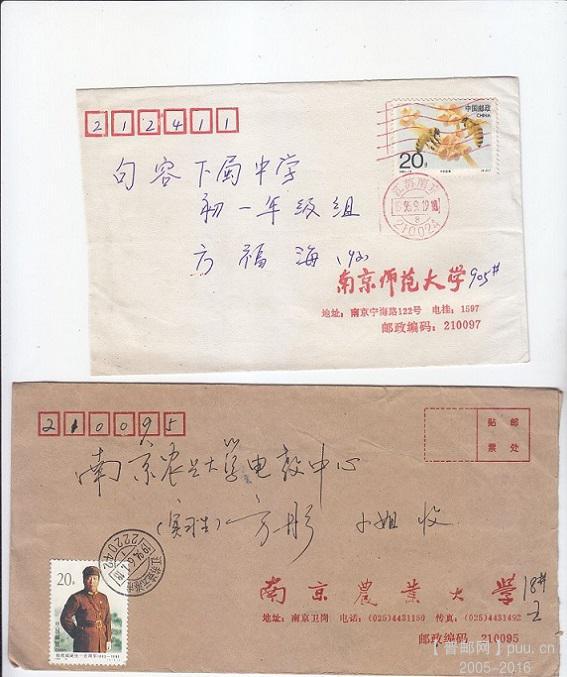 212411
中国邮政
CHINA
20分
句容下蜀中学
初一年级组
方福海(收)
210024
南京师范大学 905#
地址：南京宁海路122号 电挂：1597
邮政编码：210097
210095
贴 邮
票 处
南京农业大学电教中心
(实习生)方彤 小姐 收
222042
20分
南京農業大学 18#-2
地址：南京卫岗 电话：(025)4431150 传真：(025)4431492
邮政编码 210095
【晋邮网】puu.cn
2005-2016